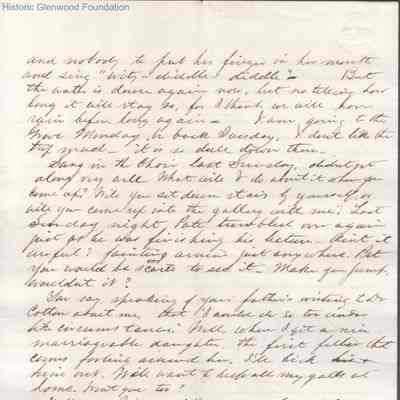 Historic Glenwood Foundation
and nobody to put her finger in her mouth
and sing "hity - diddle - diddle" - But
the water is down again now, but no telling how
long it will stay so, for I think we will have
rain before long again - I am going to the
Grove Monday, & back Tuesday. I don't like the
trip much - it is so dull down there.
Sang in the Choir last Sunday, didn't get
along very well. What will I do about it when you
come up? Will you sit down stairs by yourself, or
will you come up into the gallery with me? Last
Sunday night, Pate tumbled over again
just as he was finishing his lecture. Ain't it
awful? fainting around just anywhere. Bet
you would be scart to see it - Make you jump,
wouldn't it?
You say speaking of your father's writing to Dr
Cotton about me, that I would do so too under
like circumstances. Well, when I get a nice
marriageable daughter, the first feller that
comes fooling around her, I'll kick
him out. Will want to keep all my gals at
home. Won't you too?